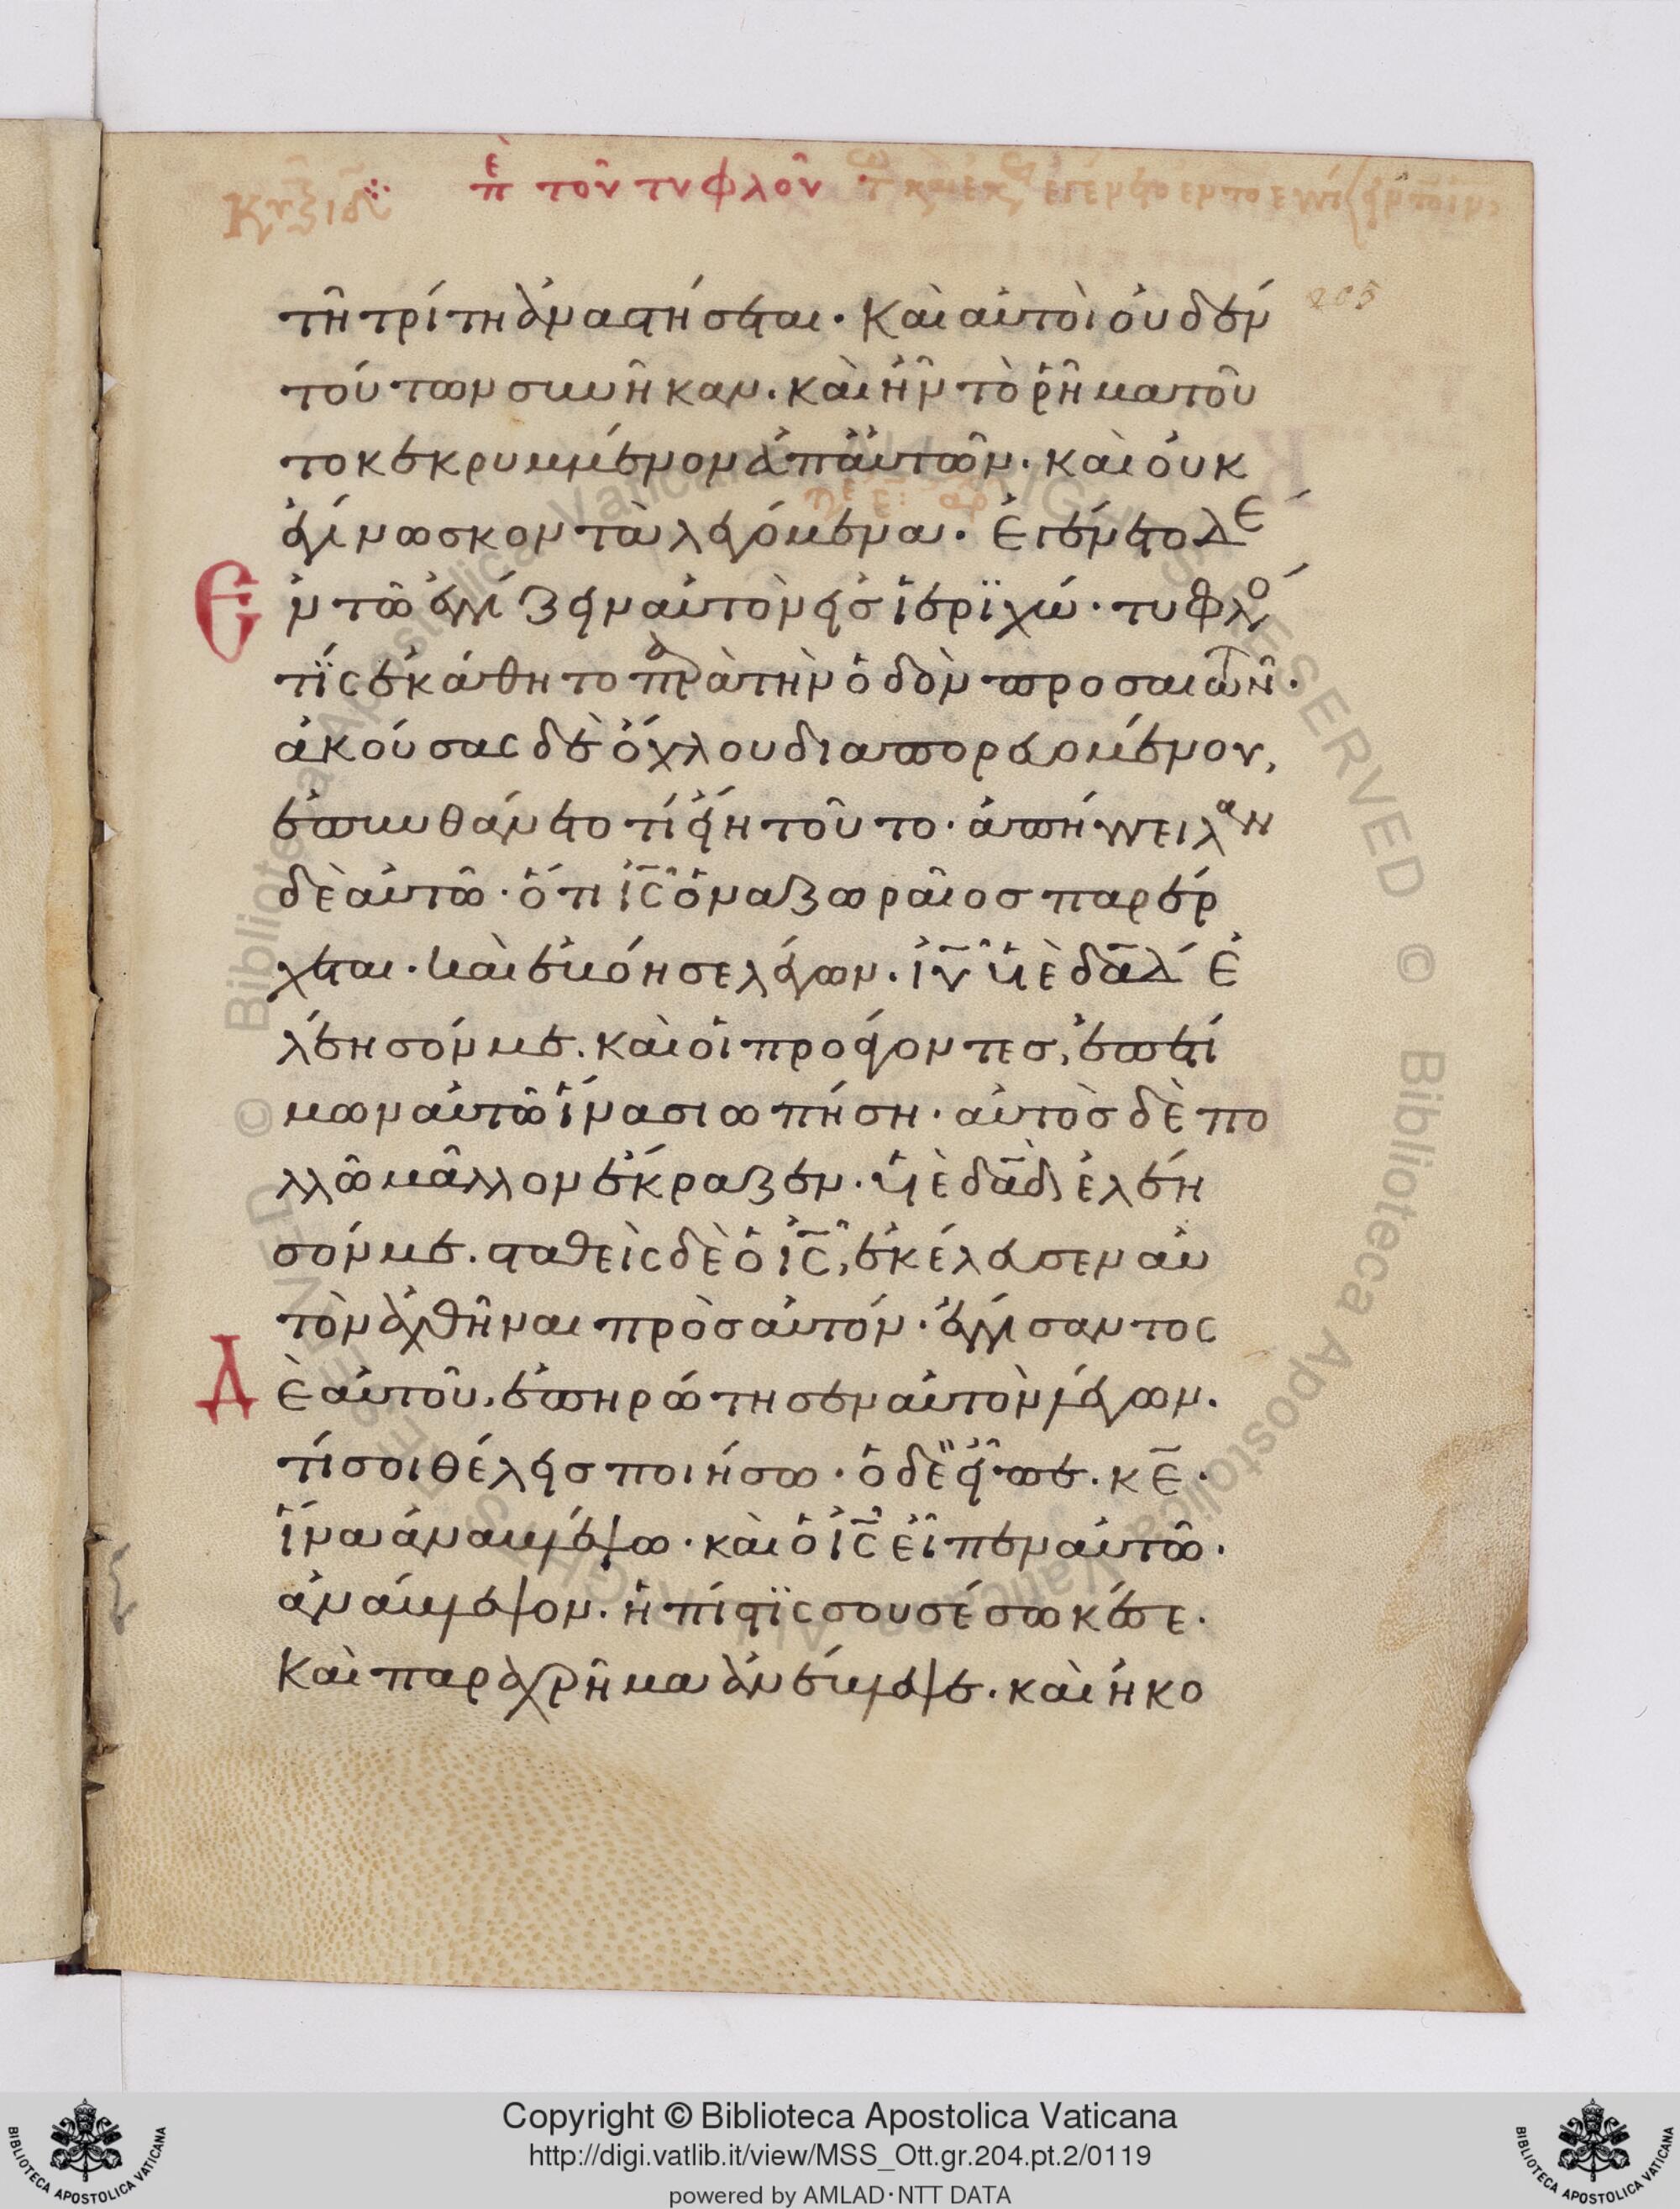 ἐπὶ τὸν τυφλὸν
205
τῆ τρίτη ἀναστήσεται · Καὶ αὐτοὶ οὐδὲν
τούτων συνῆκαν · καὶ ἦν τὸ ῥῆμα τοῦ
το κεκρυμμένον ἀπ' αὐτῶν · καὶ οὐκ
ἐγίνωσκον τὰ λεγόμενα · Ἐγένετο δὲ
ἐν τῶ ἐγγίζειν αὐτὸν εἰσ ϊεριχώ · τυφλό
τϊς ἐκάθητο παρὰ τὴν ὁδὸν προσαιτῶν ·
ἀκούσας δὲ ὄχλου διαπορευομένου,
ἐπυνθάνετο τί εἴη τοῦτο · ἀπήγγειλαν
δὲ αὐτῶ · ὅτι ις ὁ ναζωραῖοσ παρέρ
χεται · καὶ ἐβόησε λέγων · ιυ υἱὲ δαδ ἐ
λέησόν με · καὶ οἱ προάγοντεσ, ἐπετί
μων αὐτῶ ἵνα σιωπήση · αὐτὸσ δὲ πο
λλῶ μᾶλλον ἔκραζεν · υἱὲ δαδ ἐλέη
σόν με · σταθεὶς δὲ ὁ ις, ἐκέλευσεν αὐ
τὸν ἀχθῆναι πρὸσ αὐτόν · ἐγγίσαντος
Δὲ αὐτοῦ, ἐπηρώτησεν αὐτὸν λέγων ·
τί σοι θέλεισ ποιήσω · ὁ δὲ εἶπε · κε ·
ἵνα ἀναβλέψω · καὶ ὁ ις εἶπεν αὐτῶ ·
ἀνάβλεψον · ἡ πίστϊς σου σέσωκέ σε ·
Καὶ παραχρῆμα ἀνέβλεψε · καὶ ἠκο
Copyright © Biblioteca Apostolica Vaticana
http://digi.vatlib.it/view/MSS_Ott.gr.204.pt.2/0119
powered by AMLAD·NTT DATA
BIBLIOTECA APOSTOLICA VATICANA
BIBLIOTECA APOSTOLICA VATICANA